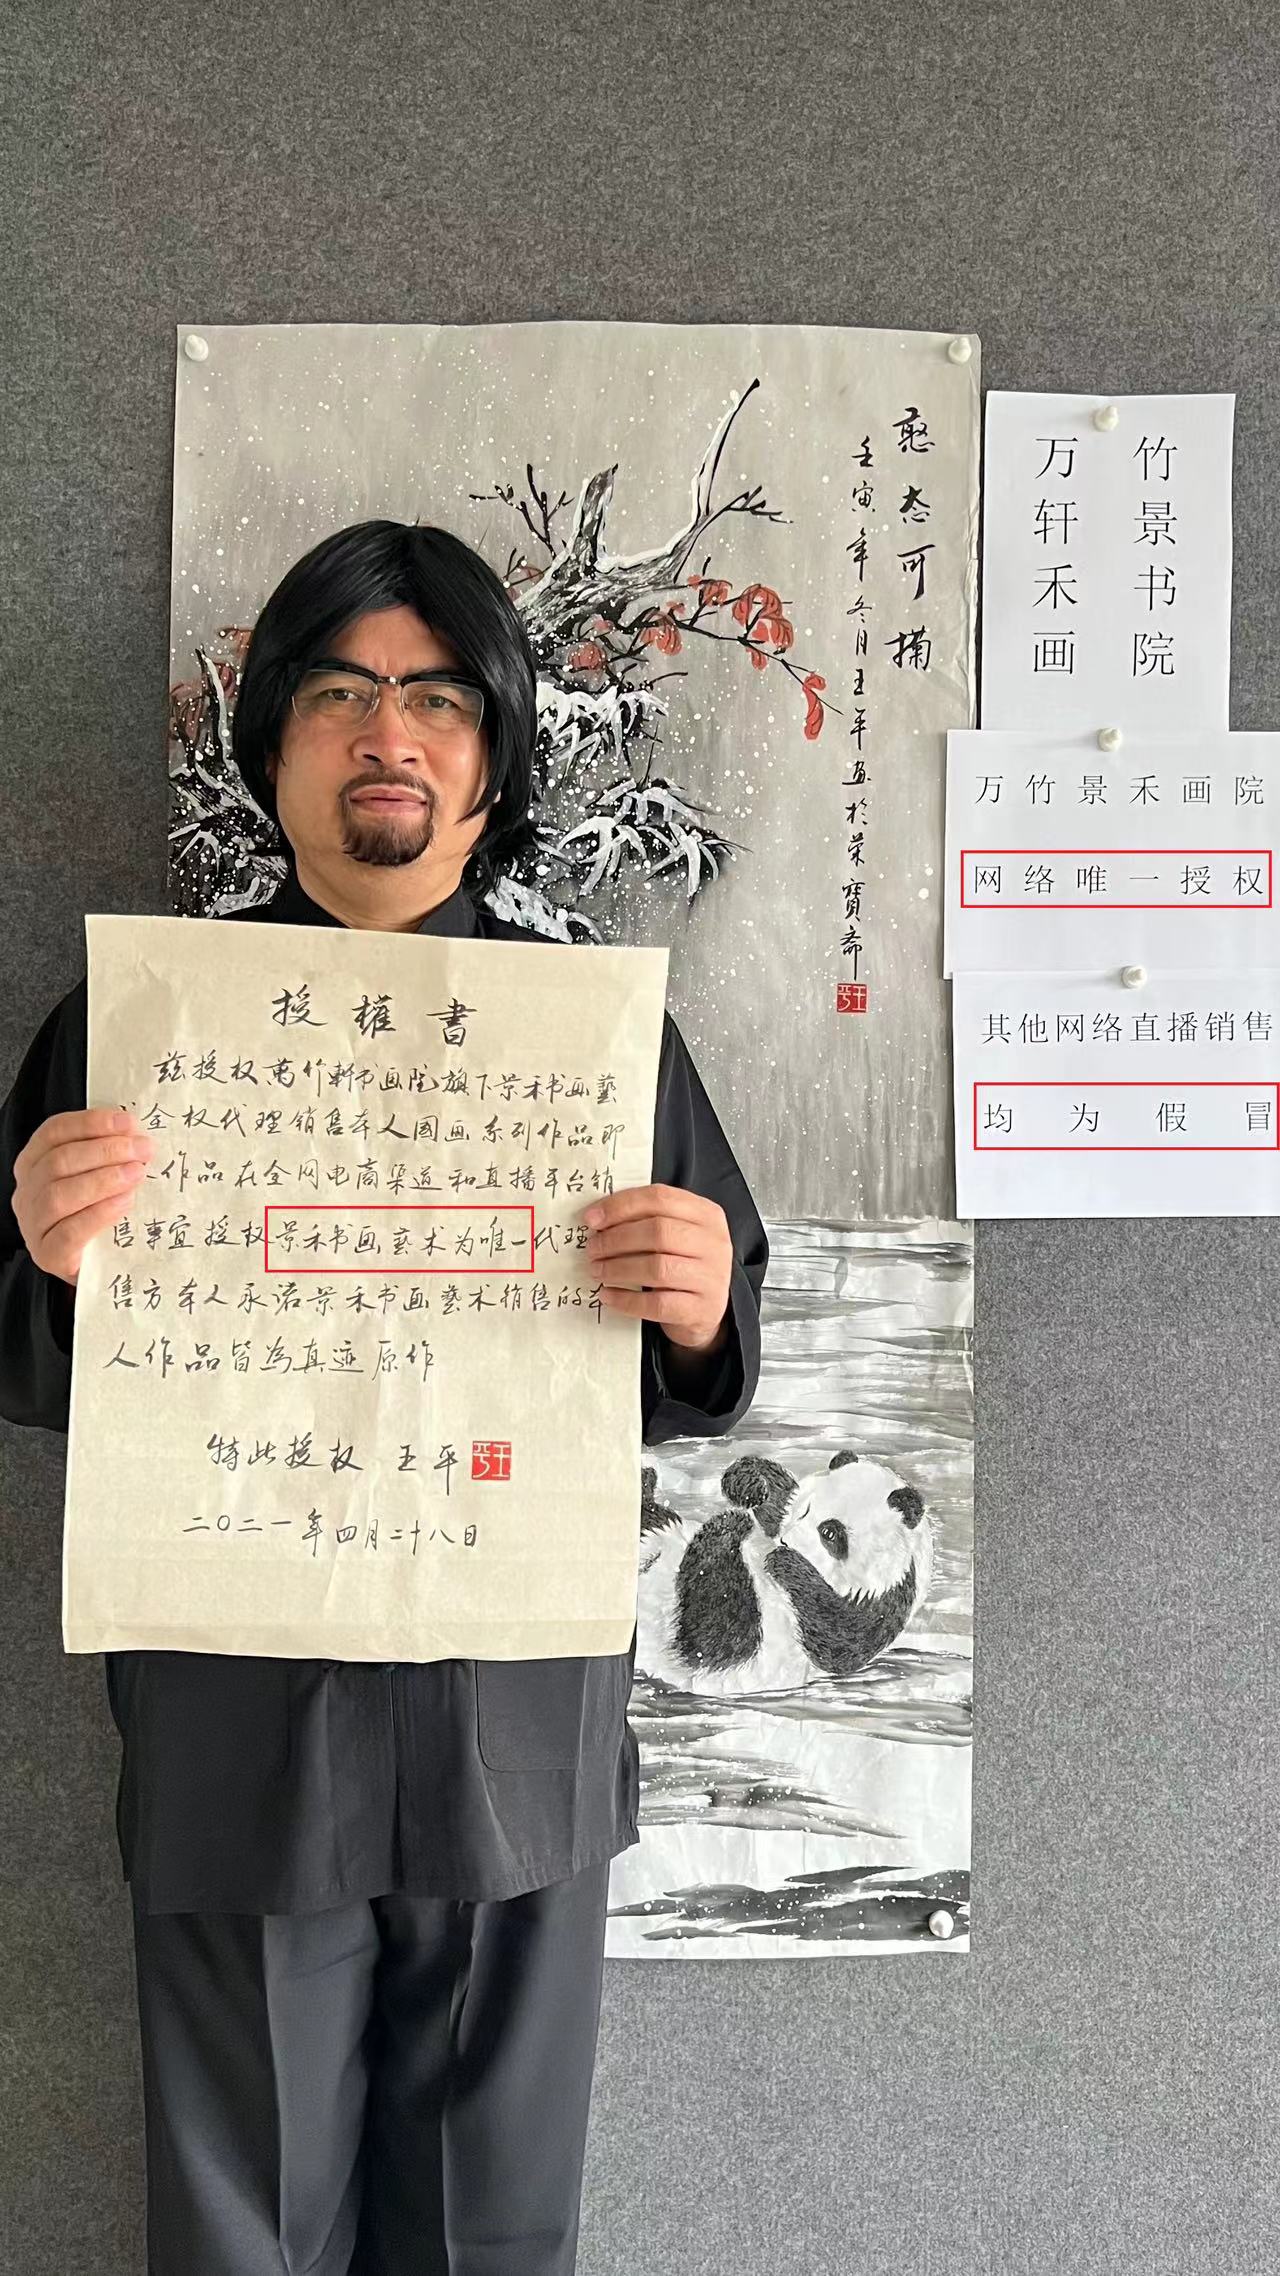 憨态可掬
壬寅年冬月王平画於荣寶斋
王平
万竹
轩景
禾书
画院
万竹景禾画院
网络唯一授权
其他网络直播销售
均为假冒
授權書
兹授权萬竹軒书画院旗下景禾书画藝
全权代理销售本人国画系列作品即
作品在全网电商渠道和直播平台销
售事宜授权景禾书画藝术为唯一代理
售方本人承诺景禾书画藝术销售的本
人作品皆為真迹原作
特此授权 王平 王平
二〇二一年四月二十八日